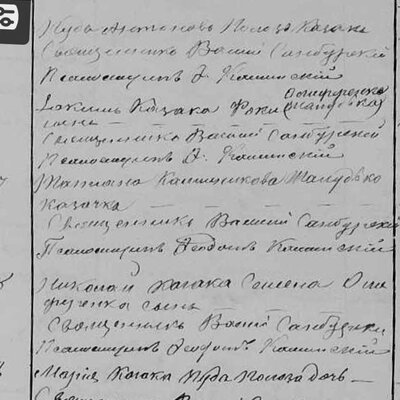 Иуда Антоновъ Полоза Казака
Священникъ Василій Самбурскій
Псаломщикъ Ѳ. Каминскій
Іакимъ Казака Фоки Онифренка (Шаповка)
сынъ
Священника Василій Самбурской
Псаломщикъ Ѳ. Каминскій
Татіана Калинникова Шаповько
казачка
Священникъ Василій Самбурскій
Псаломщикъ Ѳеодосъ Каминскій
Николай казака Семена Они
френка сынъ
Священникъ Василій Самбурски
Псаломщикъ Ѳеодосъ Каминскій
Марія Казака Іуда Полоза дочь